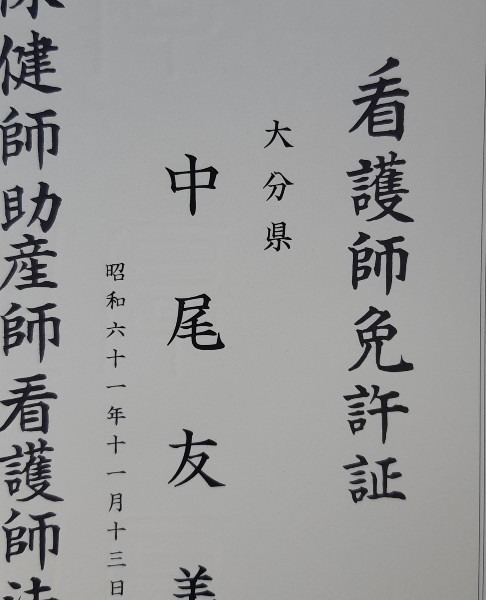 看護師免許証
大分県
中尾友美
昭和六十一年十一月十三日
保健師助産師看護師法